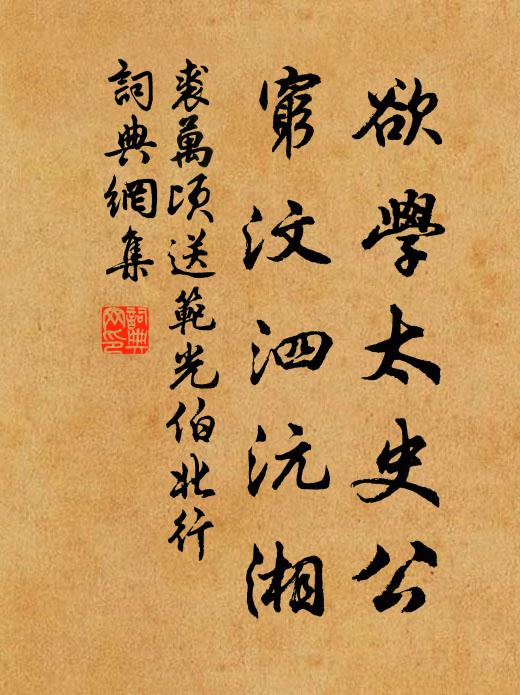 欲學太史公
窮汶泗沅湘
裘萬頃送範光伯北行
詞典網集
詞典
网印